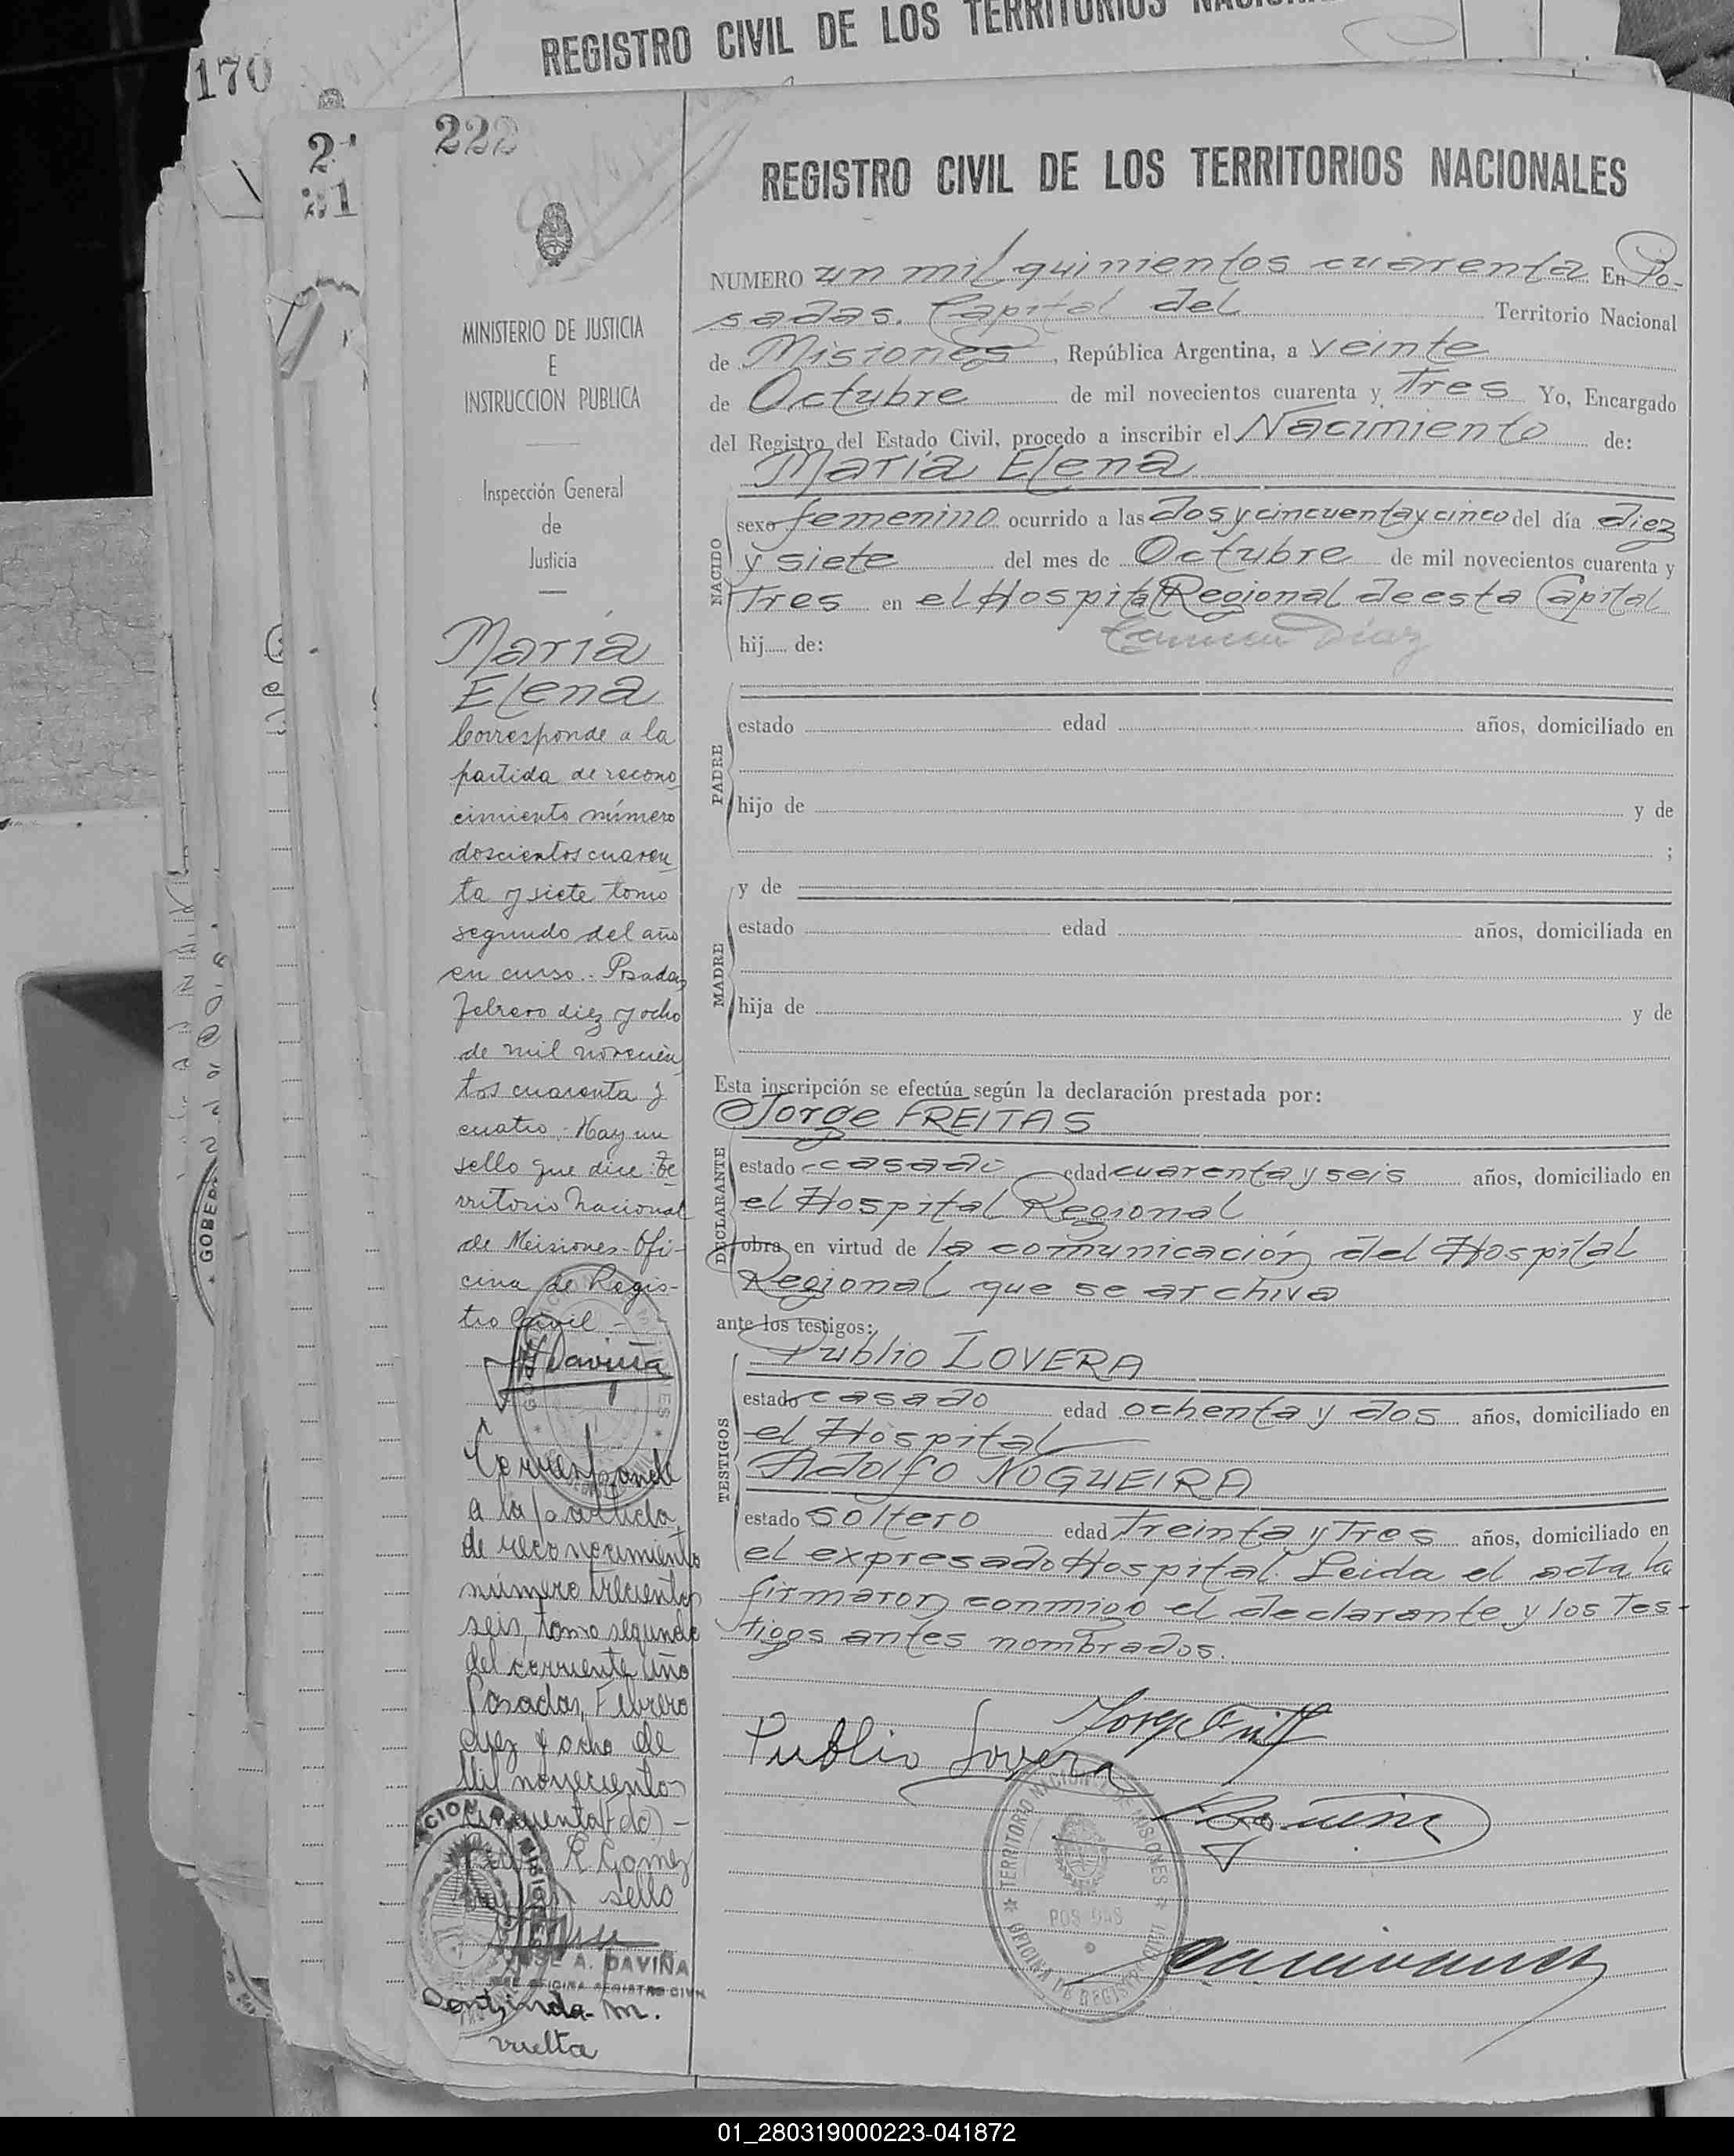 REGISTRO CIVIL DE LOS TERRITORIOS
170
21
31
222
REGISTRO CIVIL DE LOS TERRITORIOS NACIONALES
MINISTERIO DE JUSTICIA
E
INSTRUCCION PUBLICA
Inspección General
de
Justicia
María
Elena
Corresponde a la
partida de recono
cimiento número
doscientos cuaren
ta y siete tomo
segundo del año
en curso.- Posadas
febrero diez y ocho
de mil novecien
tos cuarenta y
cuatro. Hay un
sello que dice: Te
rritorio Nacional
de Misiones-Ofi-
cina de Regis-
tro Civil -
Daviña
Corresponde
a la partida
de reconocimiento
número trecientos
seis, tomo segundo
del corriente año
Posadas, Febrero
diez y ocho de
Mil novecientos
cincuenta (fdo) -
R Gomez
sello
JOSE A. DAVIÑA
JEFE OFICINA REGISTRO CIVIL
vuelta
NUMERO un mil quinientos cuarenta En Po-
sadas. Capital del Territorio Nacional
de Misiones, República Argentina, a veinte
de Octubre de mil novecientos cuarenta y Tres Yo, Encargado
del Registro del Estado Civil, procedo a inscribir el Nacimiento de:
María Elena
NACIDO
sexo femenino ocurrido a las dos y cincuenta y cinco del día diez
y siete del mes de Octubre de mil novecientos cuarenta y
Tres en el Hospital Regional de esta Capital
hij de: Díaz
PADRE
estado edad años, domiciliado en
hijo de y de
;
MADRE
y de
estado edad años, domiciliada en
hija de y de
Esta inscripción se efectúa según la declaración prestada por:
Jorge FREITAS
DECLARANTE
estado casado edad cuarenta y seis años, domiciliado en
el Hospital Regional
obra en virtud de la comunicación del Hospital
Regional que se archiva
ante los testigos:
Publio LOVERA
TESTIGOS
estado casado edad ochenta y dos años, domiciliado en
el Hospital
Adolfo NOGUEIRA
estado soltero edad Treinta y Tres años, domiciliado en
el expresado Hospital. Leida el acta la
firmaron conmigo el declarante y los Tes-
tigos antes nombrados.
Publio Lovera
TERRITORIO NACIONAL DE MISIONES
POSADAS
OFICINA DE REGISTRO CIVIL
GOBER
01_280319000223-041872